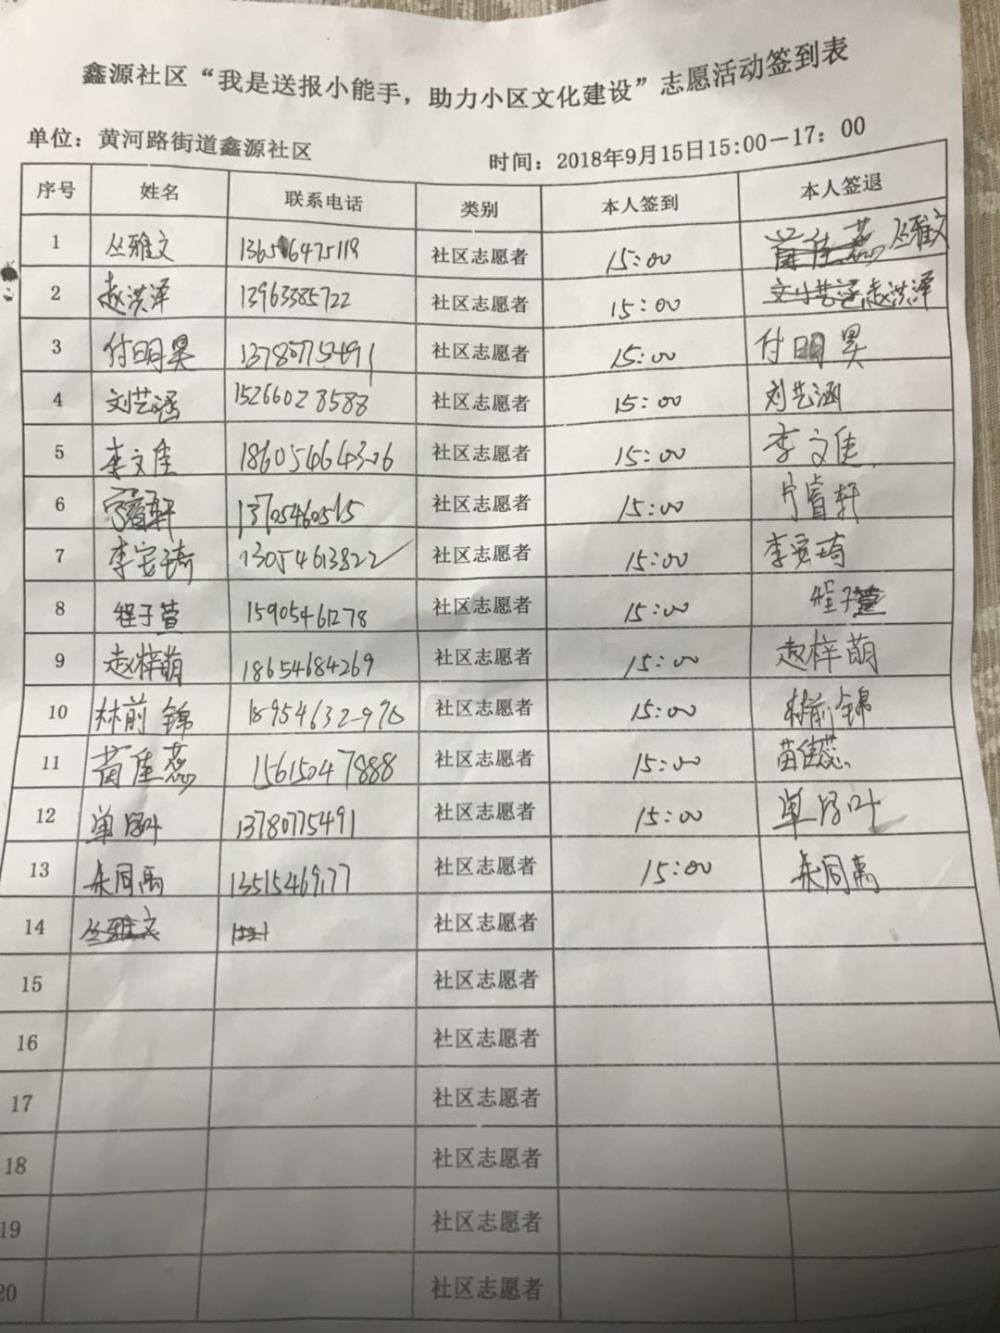 鑫源社区“我是送报小能手，助力小区文化建设”志愿活动签到表
单位：黄河路街道鑫源社区 时间：2018年9月15日15:00—17：00
序号 姓名 联系电话 类别 本人签到 本人签退
1 丛雅文 社区志愿者 15:00 丛雅文
2 赵洪泽 13963385722 社区志愿者 15:00 赵洪泽
3 付明昊 13780775491 社区志愿者 15:00 付明昊
4 刘艺涵 15266028588 社区志愿者 15:00 刘艺涵
5 李文佳 18605466436 社区志愿者 15:00 李文佳
6 宁睿轩 13705460515 社区志愿者 15:00 宁睿轩
7 李宛琦 13054613822 社区志愿者 15:00 李宛琦
8 程子萱 15905461278 社区志愿者 15:00 程子萱
9 赵梓萌 18654684269 社区志愿者 15:00 赵梓萌
10 林前锦 18954632976 社区志愿者 15:00 林前锦
11 苗佳蕊 15615047888 社区志愿者 15:00 苗佳蕊
12 13780775491 社区志愿者 15:00
13 同禹 13515469177 社区志愿者 15:00 同禹
14 丛雅文 社区志愿者
15 社区志愿者
16 社区志愿者
17 社区志愿者
18 社区志愿者
19 社区志愿者
20 社区志愿者